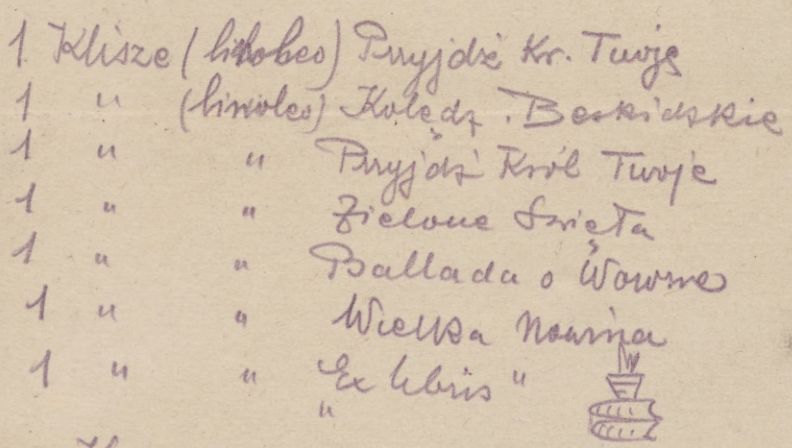 1 Klisze (linoleo) Przyjdź Kr. Twoje
1 " (linoleo) Kolędz. Beskidzkie
1 " " Przyjdź Król Twoje
1 " " Zielone Święta
1 " " Ballada o
1 " " Wielka Nowina
1 " " "Ex libris"